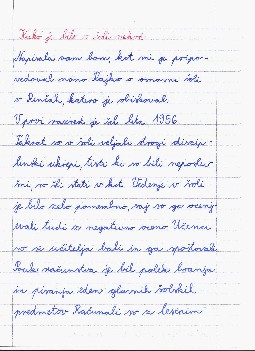 Kako je bilo v šoli nekoč
Napisala vam bom, kot mi je pripo-
vedoval nono Rajko o osnovni šoli
v Renčah, katero je obiskoval.
V prvi razred je šel leta 1956.
Takrat so v šoli veljali strogi discip-
linski ukrepi, tisti ki so bili neposluš-
ni so šli stati v kot. Vedenje v šoli
je bilo zelo pomembno, saj so ga ocenje-
vali tudi z negativno oceno. Učenci
so se učitelja bali in ga spoštovali.
Pouk računstva je bil poleg branja
in pisanja eden glavnih šolskih
predmetov. Računali so z lesenim